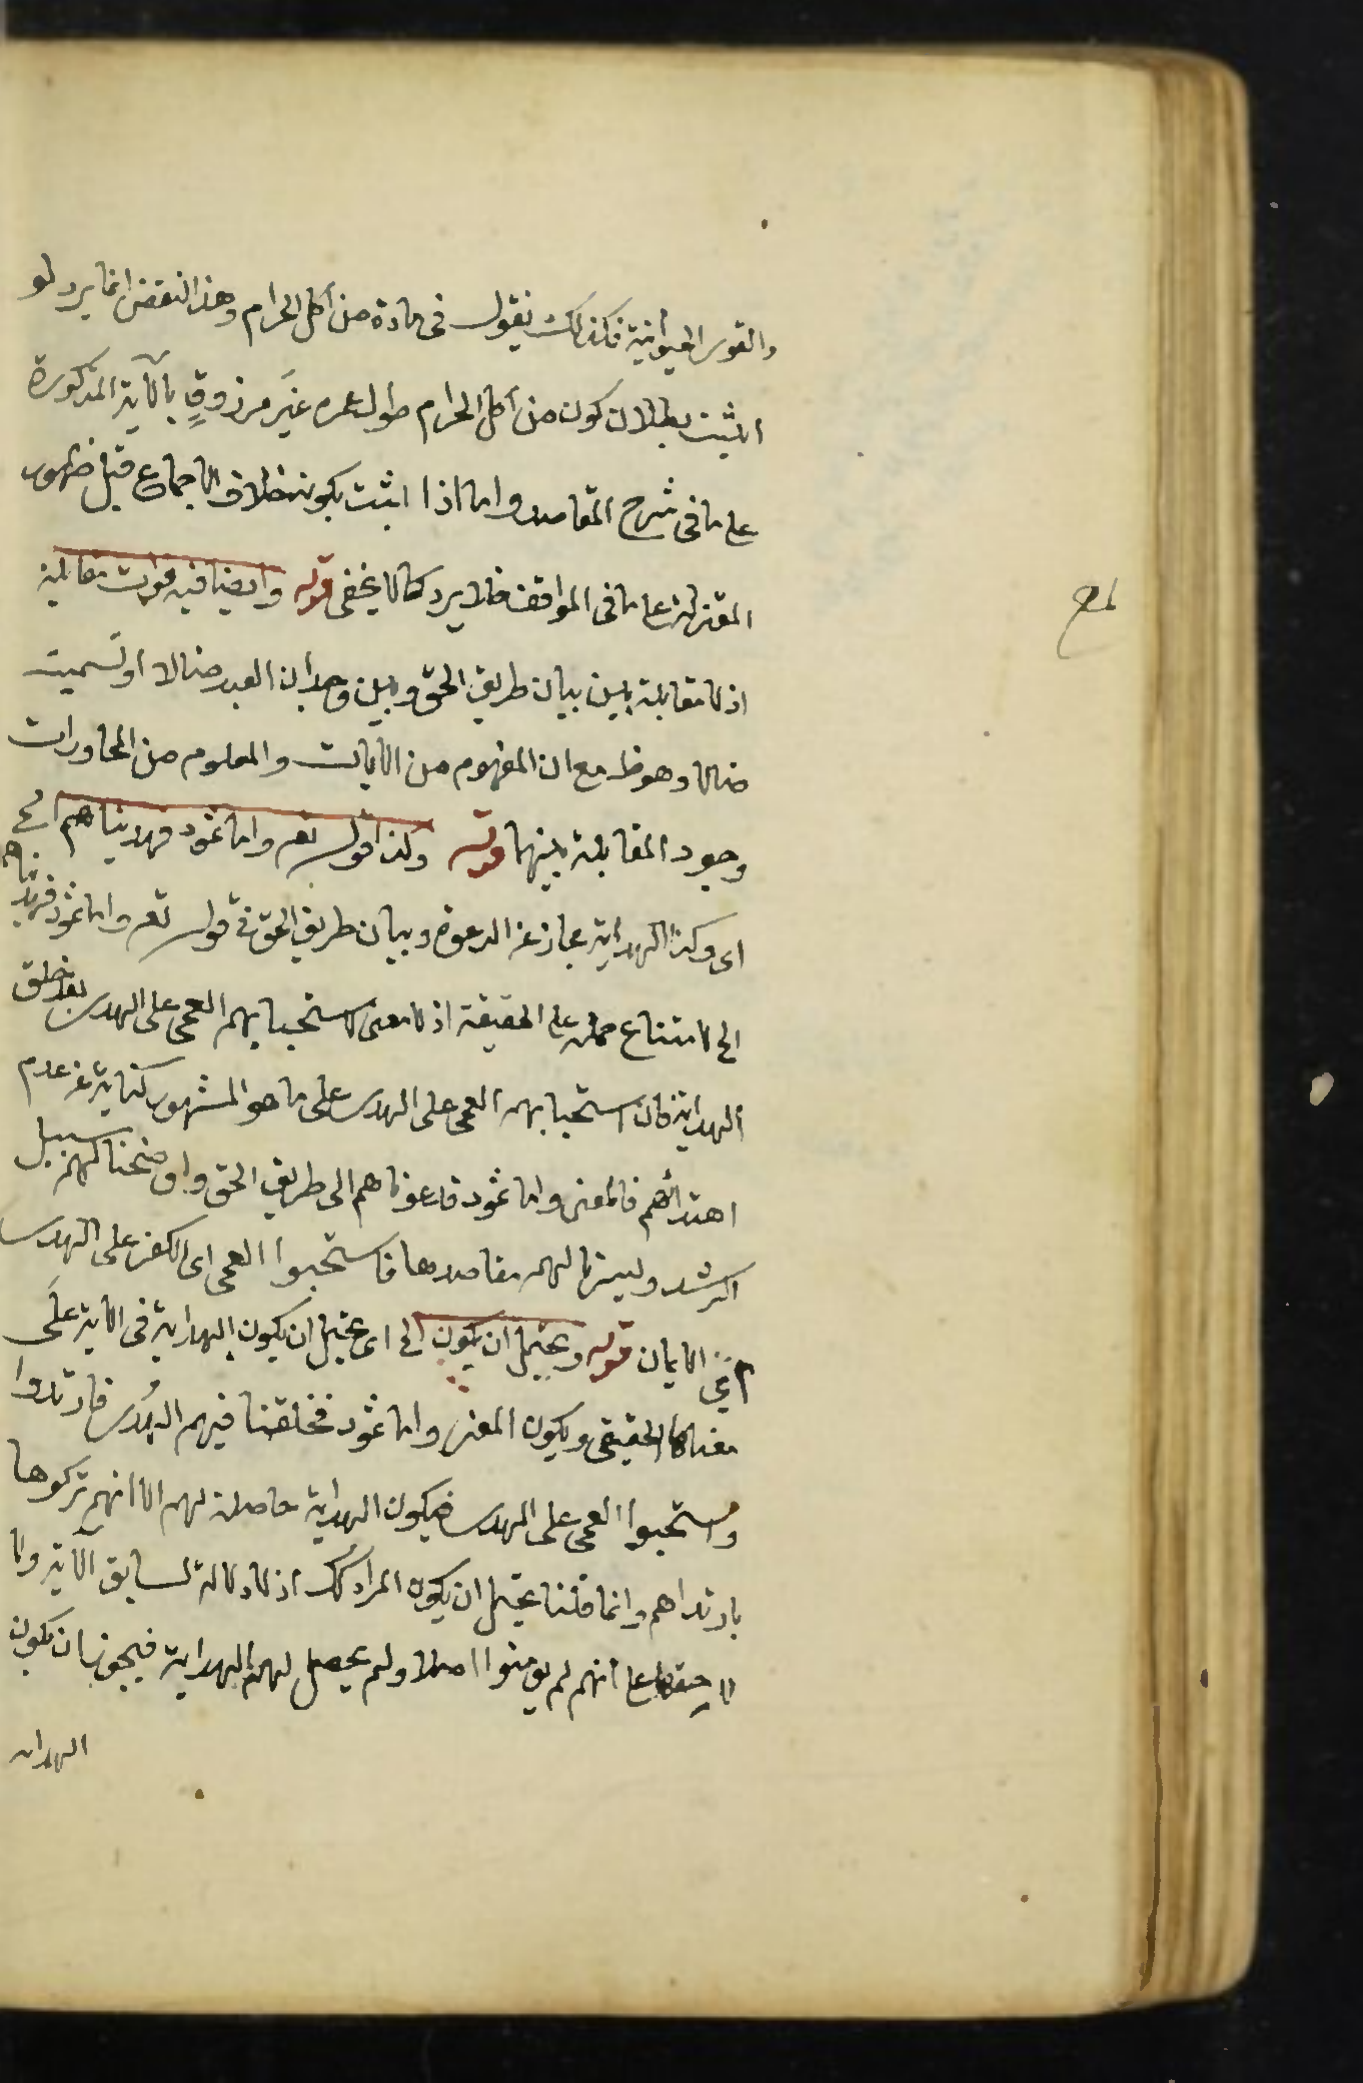 والقوى الحيوانية فكذلك نقول في مادة من أكل الحرام وهذا النقض انما يرد لو
اثبت بطلان كون من أكل الحرام طول عمره غير مرزوقٍ بالآية المذكورة
على ما في شرح المقاصد واما اذا اثبت بكونه خلاف الاجماع قبل ظهور
المعتزلة على ما في المواقف فلا يرد كما لا يخفى قوله وايضا فيه فوات مقابلة
اذ لا مقابلة بين بيان طريق الحق وبين وجدان العبد ضالا او تسميته
ضالا وهو ظ مع ان المفهوم من الآيات والمعلوم من المحاورات
وجود المقابلة بينهما قوله وكذا قوله تعم واما ثمود فهديناهم الخ
اى وكذا الهداية مجاز عن الدعوة وبيان طريق الحق في قوله تعم واما ثمود فهديناهم
الخ لامتناع حمله على الحقيقة اذ لا معنى لاستحبابهم العمى على الهدى بعد خلق
الهداية فان استحبابهم العمى على الهدى على ما هو المشهور كناية عن عدم
اهتدائهم فالمعنى واما ثمود فدعوناهم الى طريق الحق واوضحنا لهم سبيل
الرشد ويسرنا لهم مقاصدها فاستحبوا العمى اى الكفر على الهدى
اى الايمان قوله ويحتمل ان يكون الخ اى يحتمل ان يكون الهداية في الاية على
معناها الحقيقى ويكون المعنى واما ثمود فخلقنا فيهم الهُدى فارتدوا
واستحبوا العمى على الهدى فيكون الهداية حاصلة لهم الا انهم تركوها
بارتدادهم وانما قلنا يحتمل ان يكون المراد كك اذ لا دلالة لسابق الآية ولا
لاحقها على انهم لم يؤمنوا اصلا ولم يحصل لهم الهداية فيجوز ان يكون
الهداية